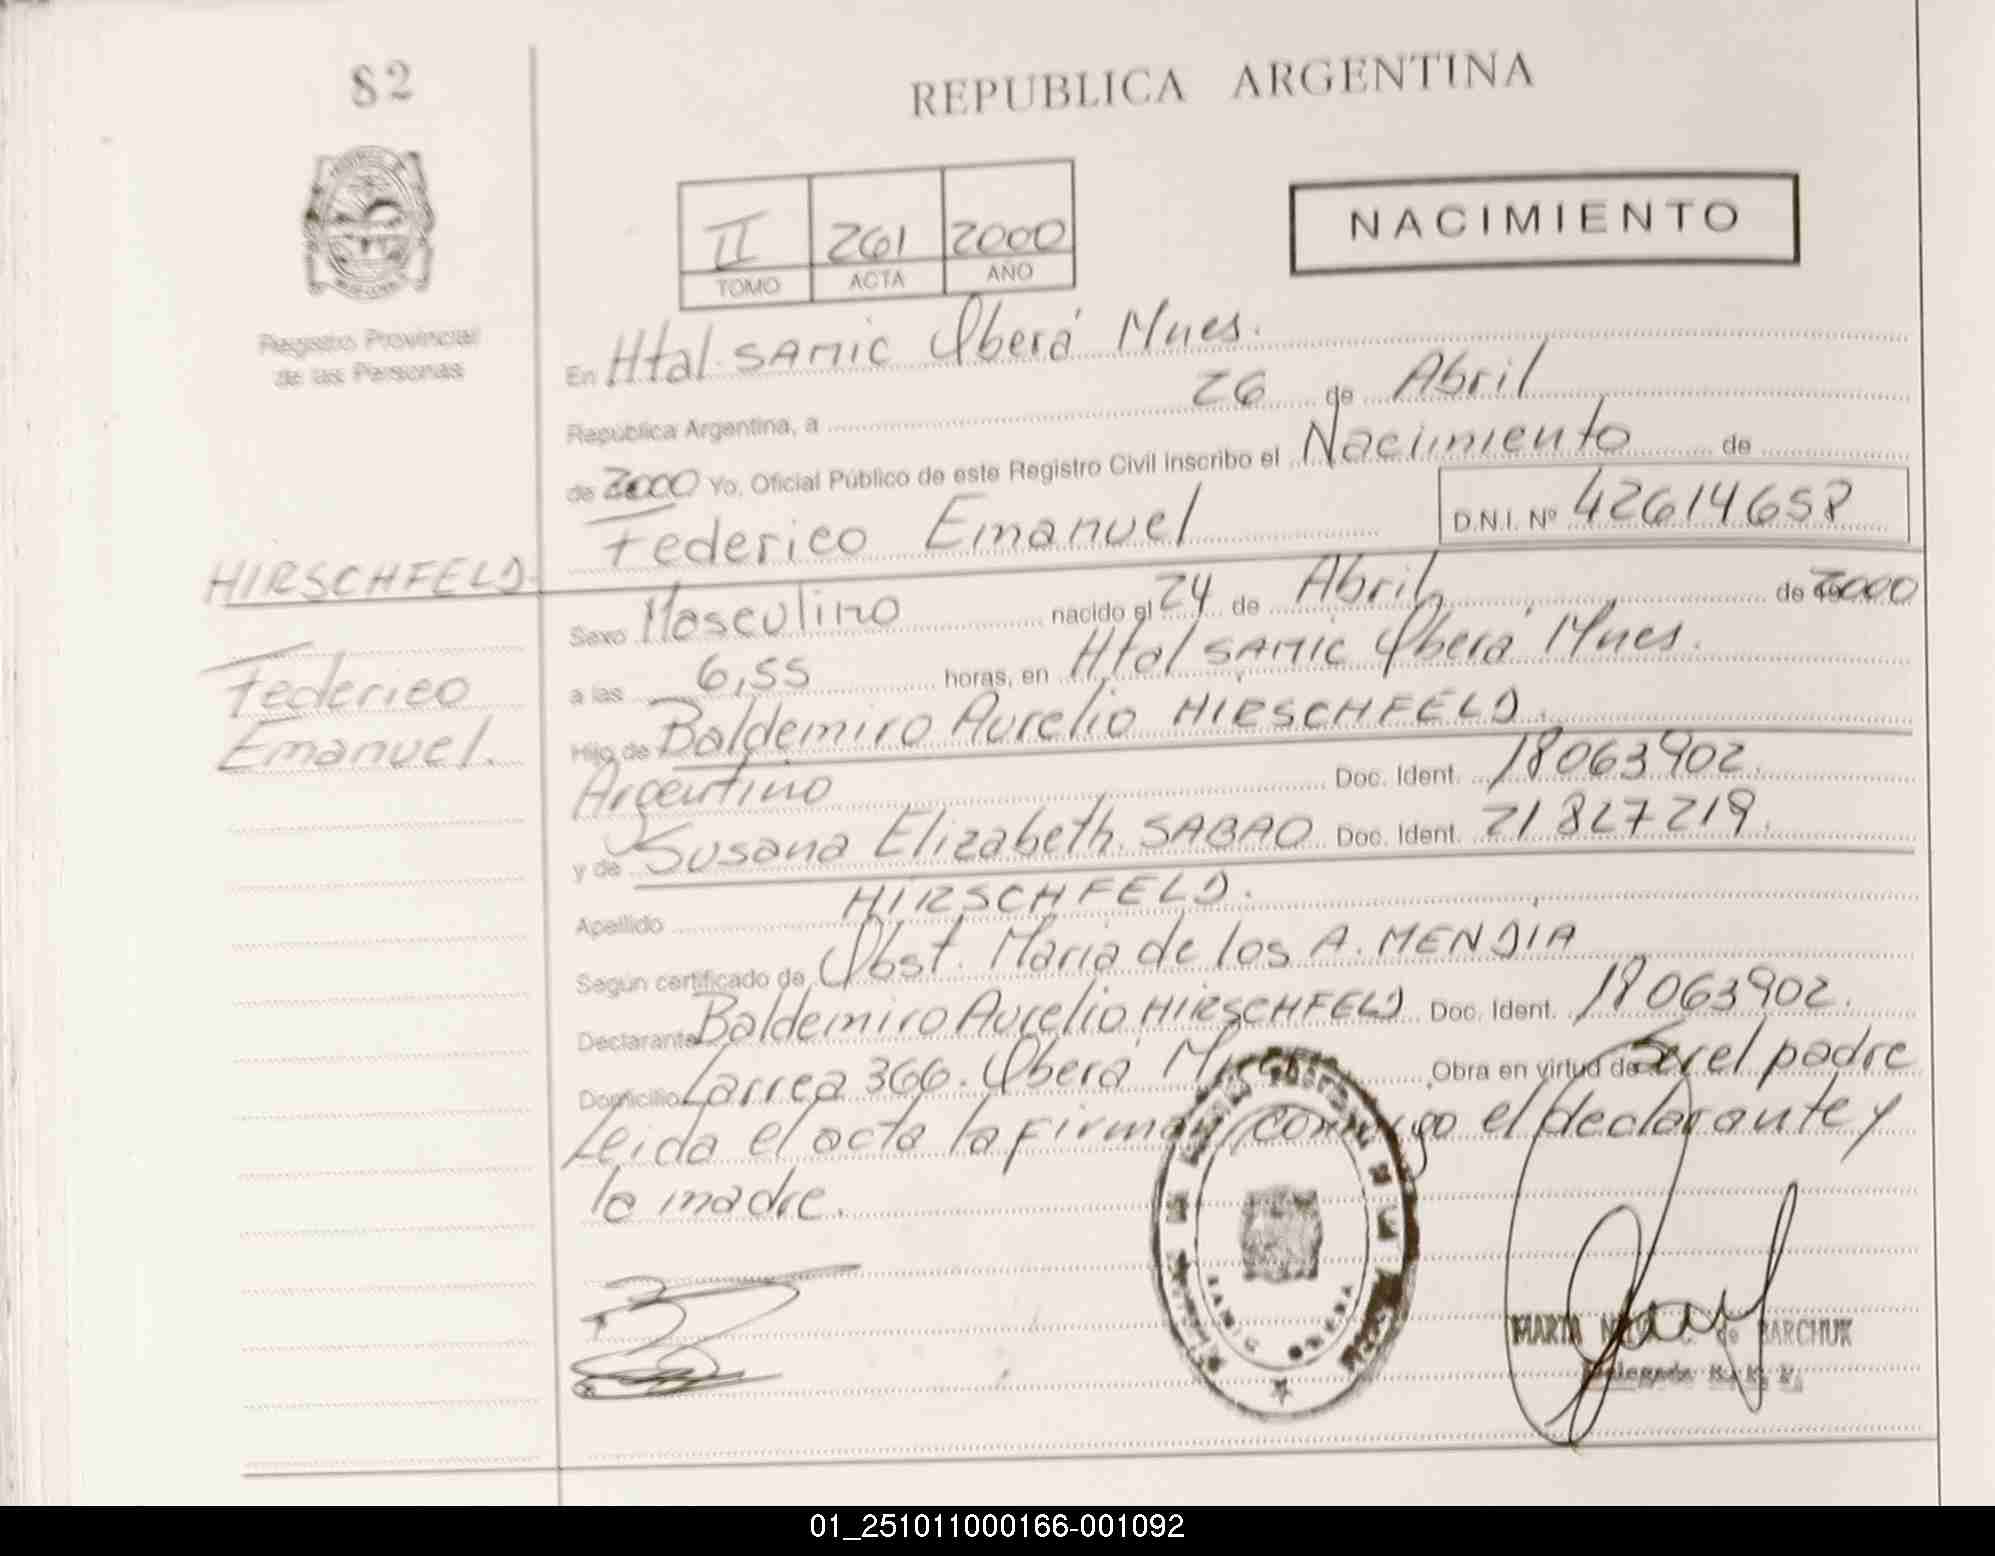 82
REPUBLICA ARGENTINA
II 261 2000
TOMO ACTA AÑO
NACIMIENTO
Registro Provincial
de las Personas
En Htal SAMIC Oberá Mnes.
República Argentina, a 26 de Abril
de 2000 Yo, Oficial Público de este Registro Civil inscribo el Nacimiento de
Federico Emanuel D.N.I. Nº 42614658
HIRSCHFELD
Federico
Emanuel.
Sexo Masculino nacido el 24 de Abril de 2000
a las 6,55 horas, en Htal SAMIC Oberá Mnes.
Hijo de Baldemiro Aurelio HIRSCHFELD.
Argentino Doc. Ident. 18063902.
y de Susana Elizabeth SABAO Doc. Ident. 21827219.
Apellido HIRSCHFELD.
Según certificado de Obst. Maria de los A. MENDIA
Declarante Baldemiro Aurelio HIRSCHFELD Doc. Ident. 18063902.
Domicilio Larrea 366. Oberá Obra en virtud de Ser el padre
Leida el acta la firman conmigo el declarante y
la madre.
SAMIC OBERA
MARTA de BARCHUK
Delegada
01_251011000166-001092